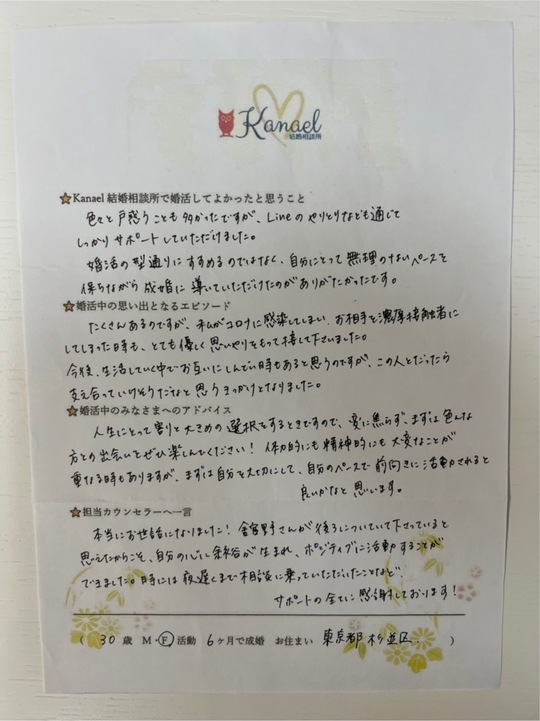 Kanael
結婚相談所
Kanael 結婚相談所で婚活してよかったと思うこと
色々と戸惑うことも多かったですが、Lineのやりとりなども通じて
しっかりサポートしていただけました。
婚活の型通りにすすめるのではなく、自分にとって無理のないペースを
保ちながら成婚に導いていただけたのがありがたかったです。
婚活中の思い出となるエピソード
たくさんあるのですが、私がコロナに感染してしまい、お相手を濃厚接触者に
してしまった時も、とても優しく思いやりをもって接して下さいました。
今後、生活していく中でお互いにしんどい時もあると思うのですが、この人とだったら
支え合っていけそうだなと思うきっかけとなりました。
婚活中のみなさまへのアドバイス
人生にとって割と大きめの選択をするときですので、変に焦らず、まずは色んな
方との出会いをぜひ楽しんでください！体力的にも精神的にも大変なことが
重なる時もありますが、まずは自分を大切にして、自分のペースで前向きに活動されると
良いかなと思います。
担当カウンセラーへ一言
本当にお世話になりました！舎宮野さんが後ろについていて下さっていると
思えたからこそ、自分の心に余裕が生まれ、ポジティブに活動することが
できました。時には夜遅くまで相談に乗っていただいたことなど、
サポートの全てに感謝しております！
( 30 歳 M・F 活動 6ヶ月で成婚 お住まい 東京都杉並区. )